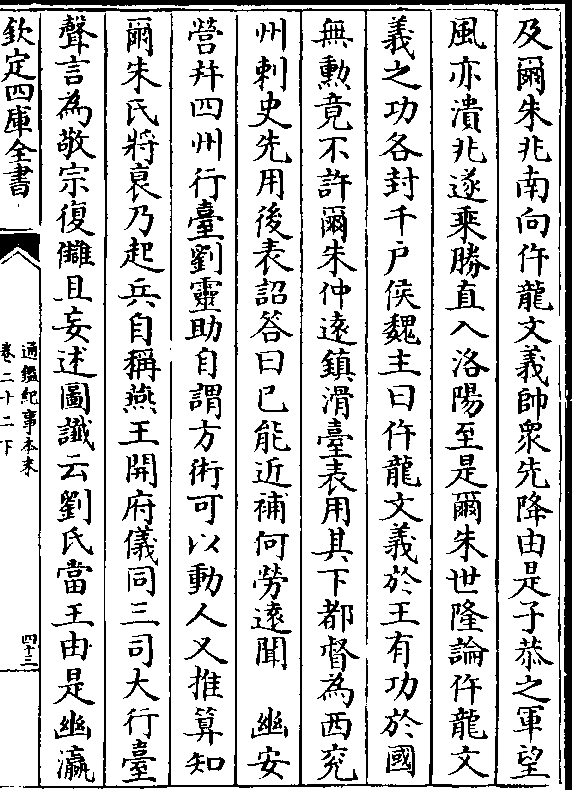 及爾朱兆南向仵龍文義帥衆先降由是子恭之軍望
風亦潰兆遂乗勝直入洛陽至是爾朱世隆論仵龍文
義之功各封千户侯魏主曰仵龍文義於王有功於國
無勲竟不許爾朱仲逺鎮滑臺表用其下都督為西兖
州刺史先用後表詔答曰已能近補何勞逺聞　幽安
營幷四州行臺劉靈助自謂方術可以動人又推算知
爾朱氏將衰乃起兵自稱燕王開府儀同三司大行臺
聲言為敬宗復讎且妄述圖讖云劉氏當王由是幽瀛
欽定四庫全書
通鑑紀事本末
卷二十二下
四十三